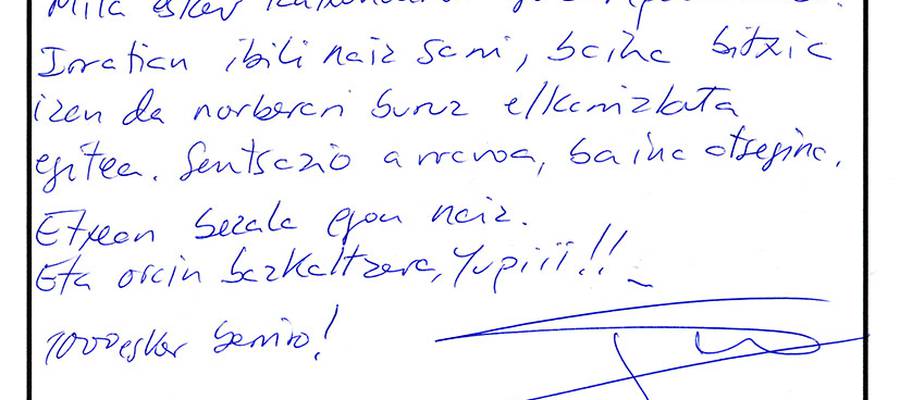 Mila esker
Irratian ibili naiz sarri, baina bitxia
izan da norberari buruz elkarrizketa
egitea. Sentsazio arraroa, baina atsegina.
Etxean bezala egon naiz.
Eta orain bazkaltzera, Yupiii!!
1000 esker berriro!